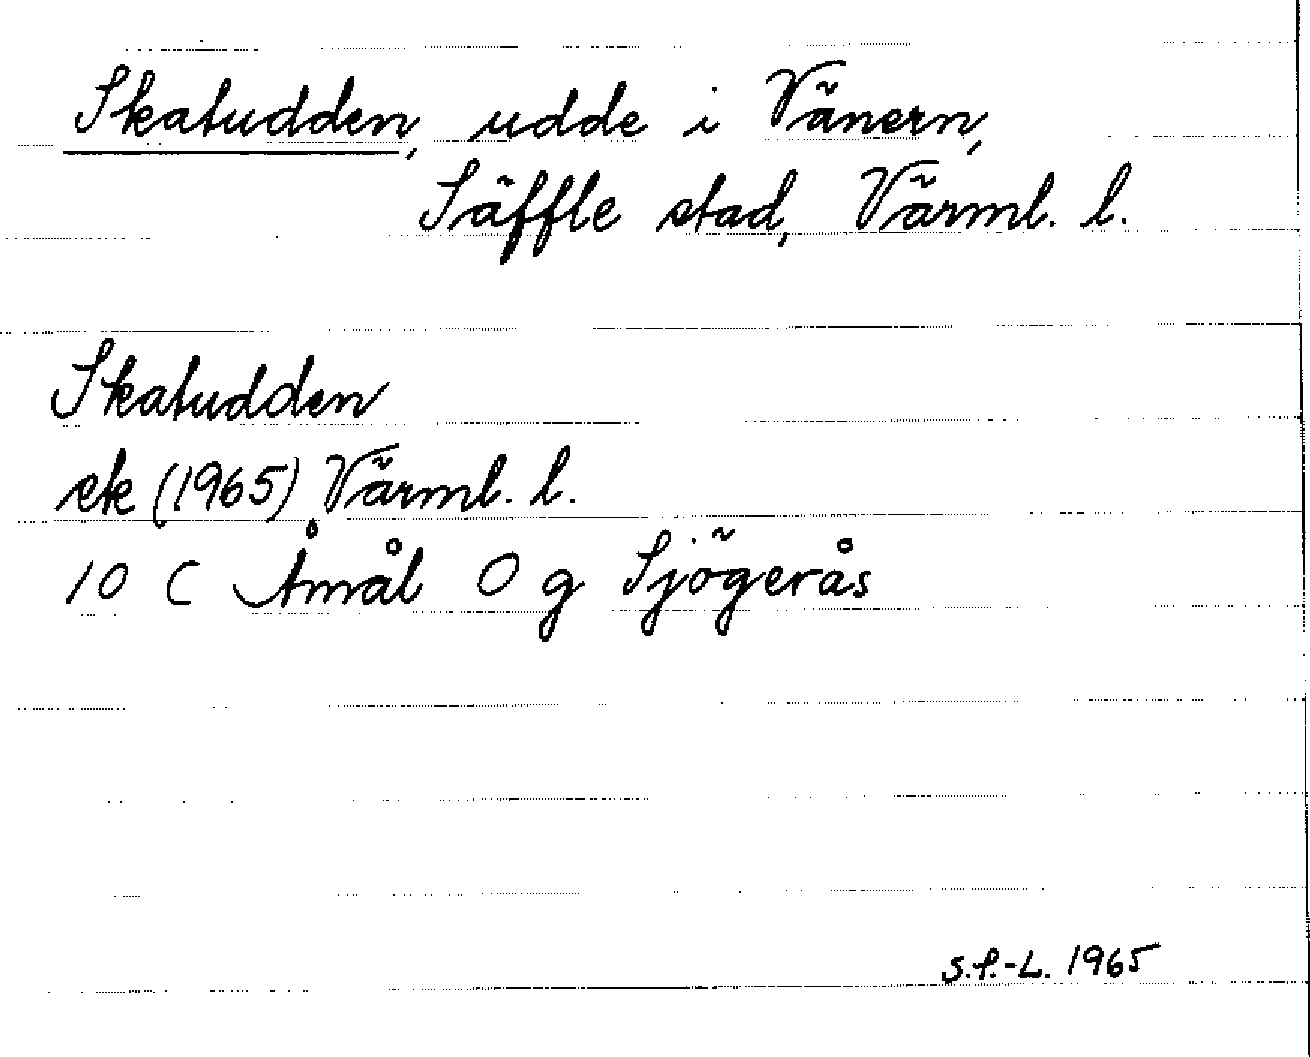 Skatudden, udde i Vänern,
Säffle stad, Värml. l.
Skatudden
ek (1965) Värml. l.
10 C Åmål O g Sjögerås
S.F.-L. 1965